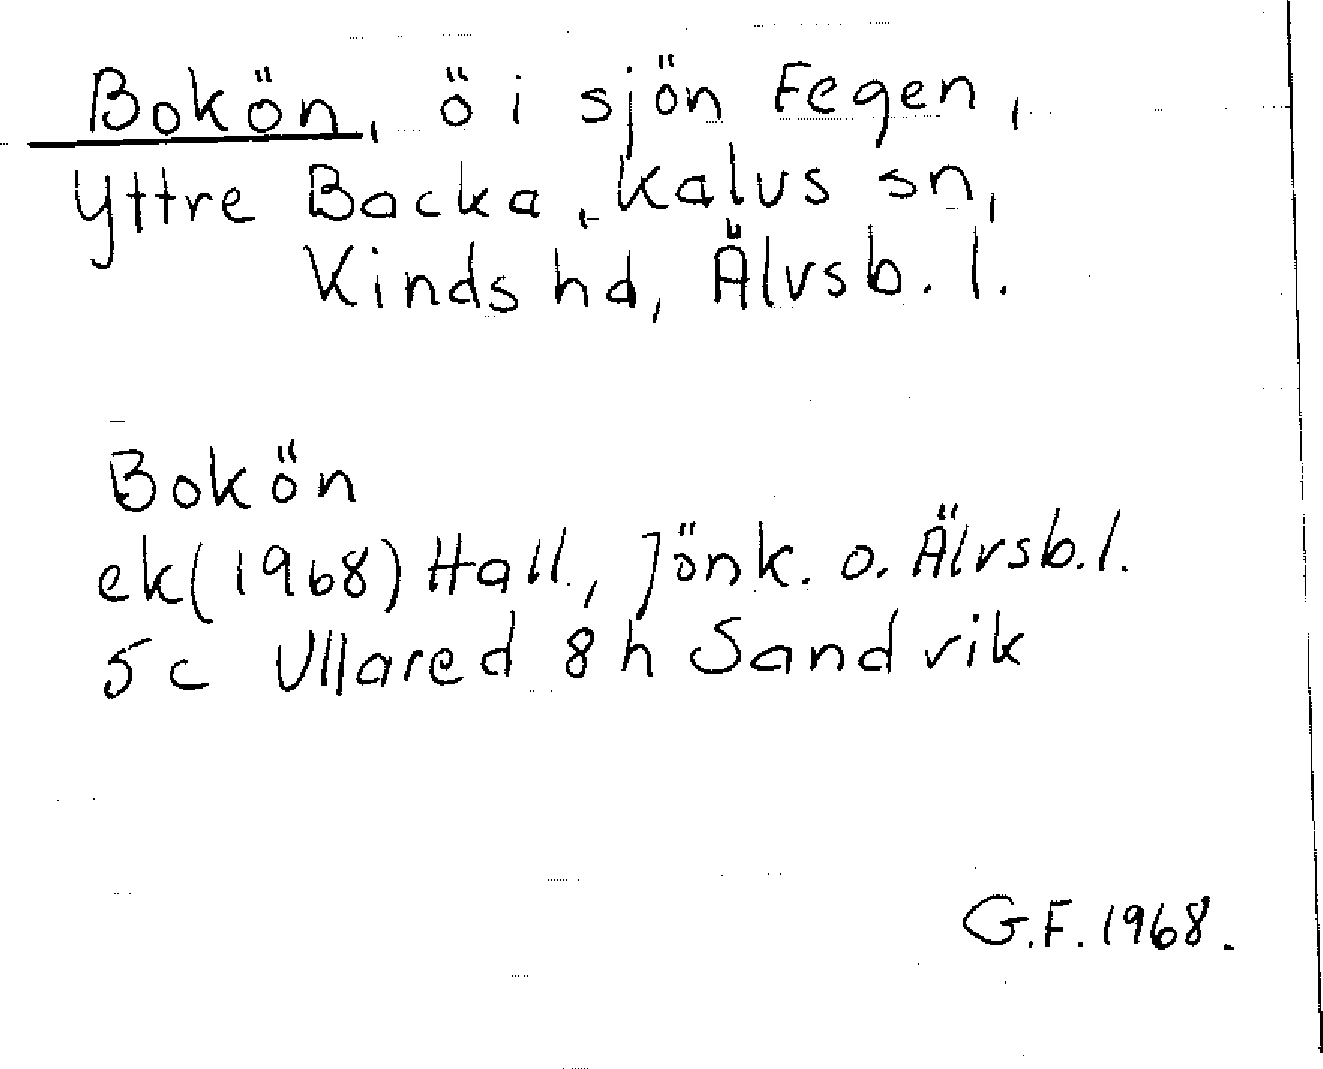 Bokön, ö i sjön Fegen,
Yttre Backa, Kalvs sn,
Kinds hd, Älvsb. l.
Bokön
ek(1968) Hall., Jönk. o. Älvsb. l.
5c Ullared 8h Sandvik
G.F. 1968.